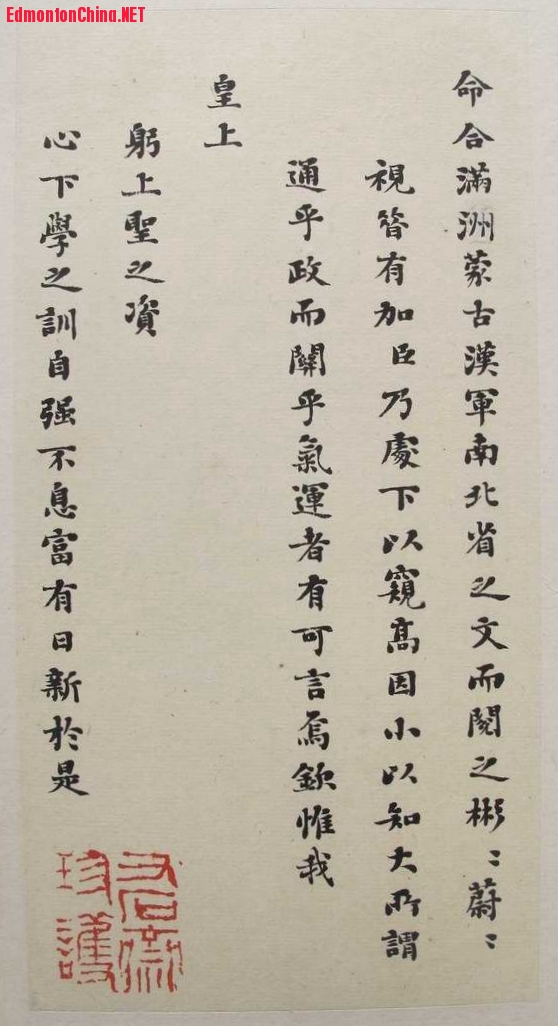 EdmontonChina.NET
命合滿洲蒙古漢軍南北省之文而閱之彬〻蔚〻
視昝有加臣乃處下以窺髙因小以知大所謂
通乎政而關乎氣運者有可言焉欽惟我
皇上
躬上聖之資
心下學之訓自强不息富有日新於是
友石齋
珍護